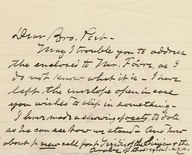 Dear Bro. Peet-
May I trouble you to address
the enclosed to Mrs. Farr, as I
do not know what it is - I have
left the envelope open in case
you wish to slip in something -
I have made a showing of costs, to date
so she can see how we stand - And how
about new